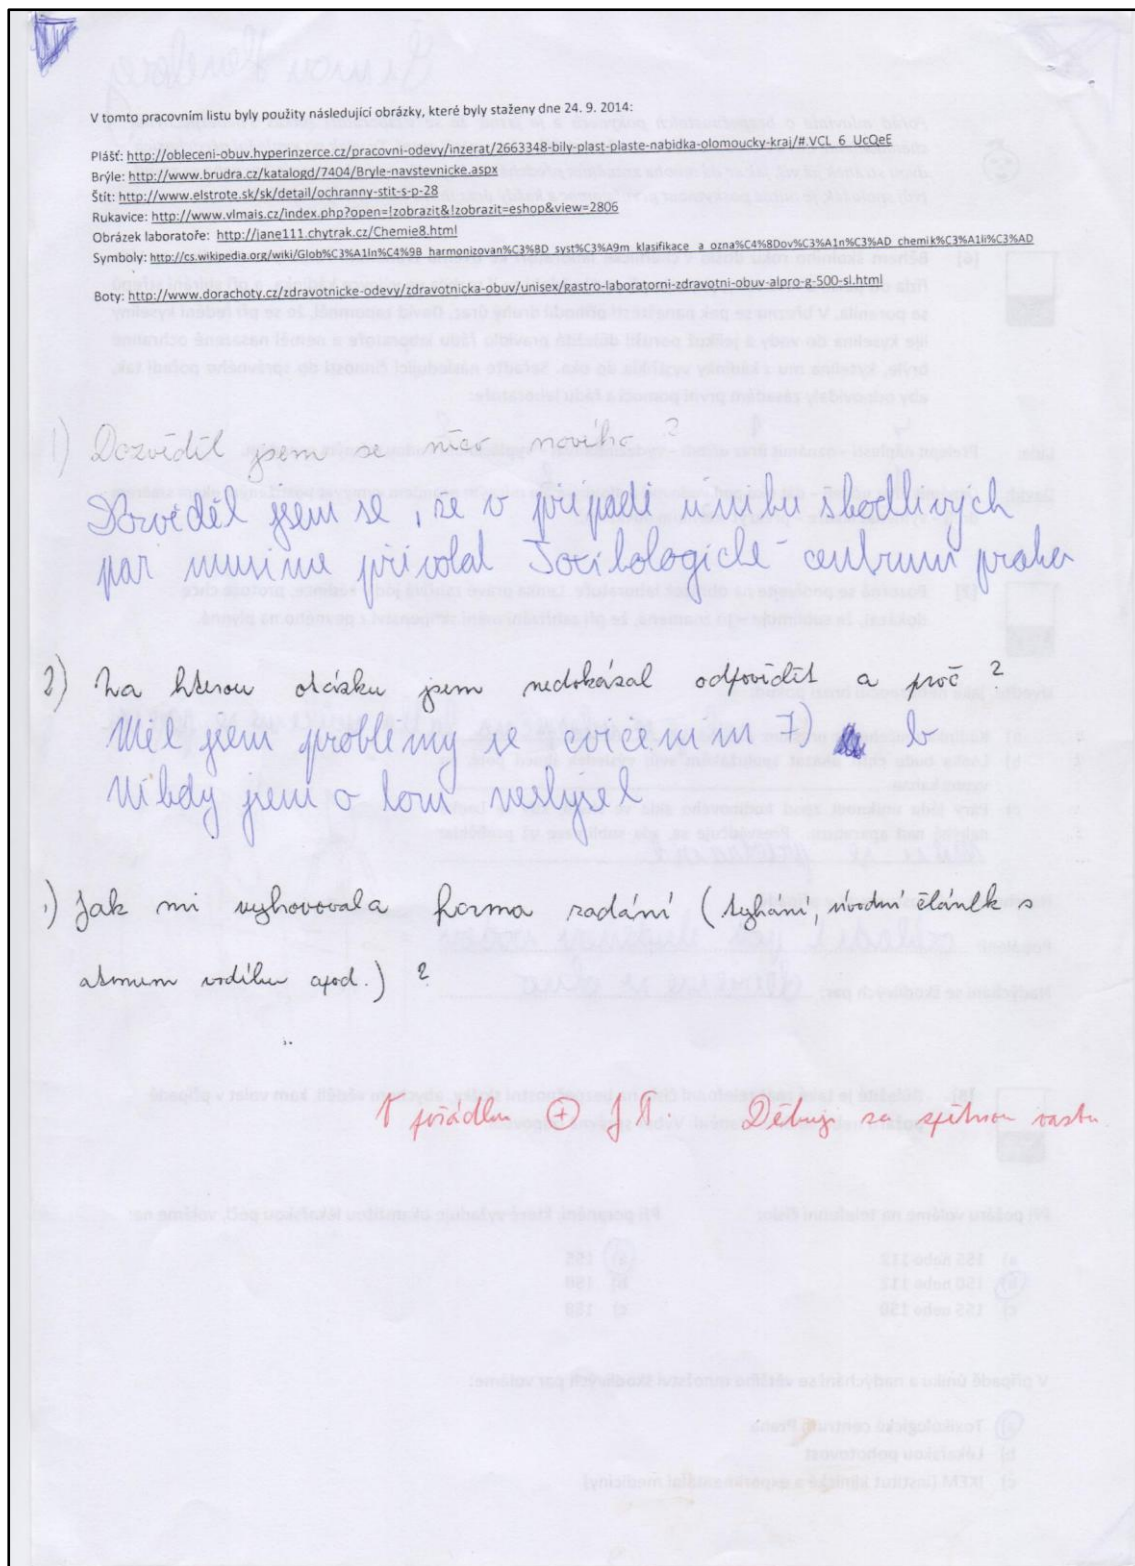 V tomto pracovním listu byly použity následující obrázky, které byly staženy dne 24. 9. 2014:
Plášť: http://obleceni-obuv.hyperinzerce.cz/pracovni-odevy/inzerat/2663348-bily-plast-plaste-nabidka-olomoucky-kraj/#.VCL_6_UcQeE
Brýle: http://www.brudra.cz/katalogd/7404/Bryle-navstevnicke.aspx
Štít: http://www.elstrote.sk/sk/detail/ochranny-stit-s-p-28
Rukavice: http://www.vlmais.cz/index.php?open=!zobrazit&!zobrazit=eshop&view=2806
Obrázek laboratoře: http://jane111.chytrak.cz/Chemie8.html
Symboly: http://cs.wikipedia.org/wiki/Glob%C3%A1ln%C4%9B_harmonizovan%C3%BD_syst%C3%A9m_klasifikace_a_ozna%C4%8Dov%C3%A1n%C3%AD_chemik%C3%A1li%C3%AD
Boty: http://www.dorachoty.cz/zdravotnicke-odevy/zdravotnicka-obuv/unisex/gastro-laboratorni-zdravotni-obuv-alpro-g-500-sl.html
1) Dozvěděl jsem se něco nového?
Dozvěděl jsem se, že v případě úniku škodlivých
par musíme přivolat Toxilologické centrum praha
2) Na kterou otázku jsem nedokázal odpovědět a proč?
Měl jsem problémy se cvičením 7) b
Nikdy jsem o tom neslyšel
) Jak mi vyhovovala forma zadání (tykání, úvodní článek s
atmem vodíku apod.)?
V pořádku + J.T. Děkuji za zpětnou vazbu